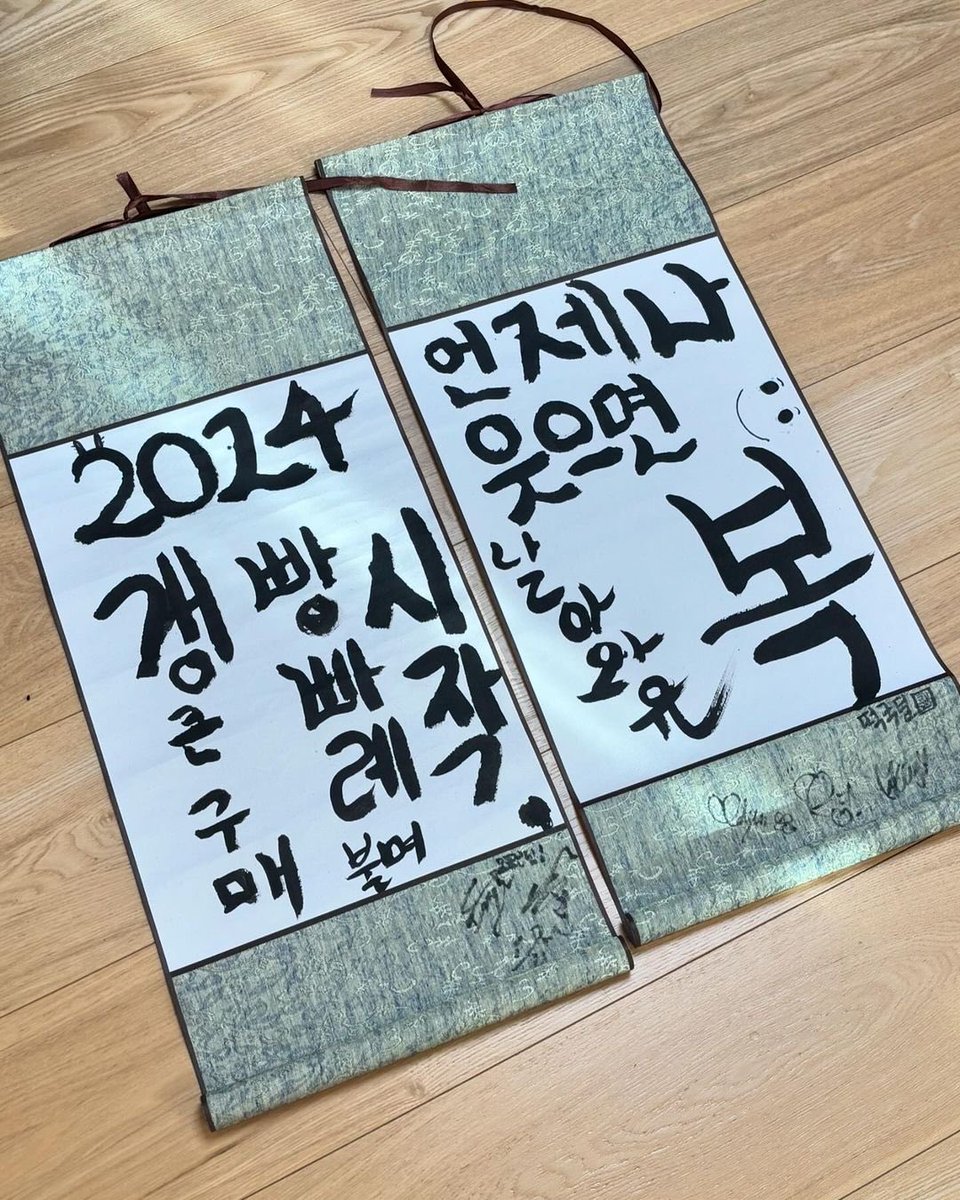 2024
갱큰구매
빵빠레 불며
시작.
언제나
웃으면
복
날아와유
떡국팀